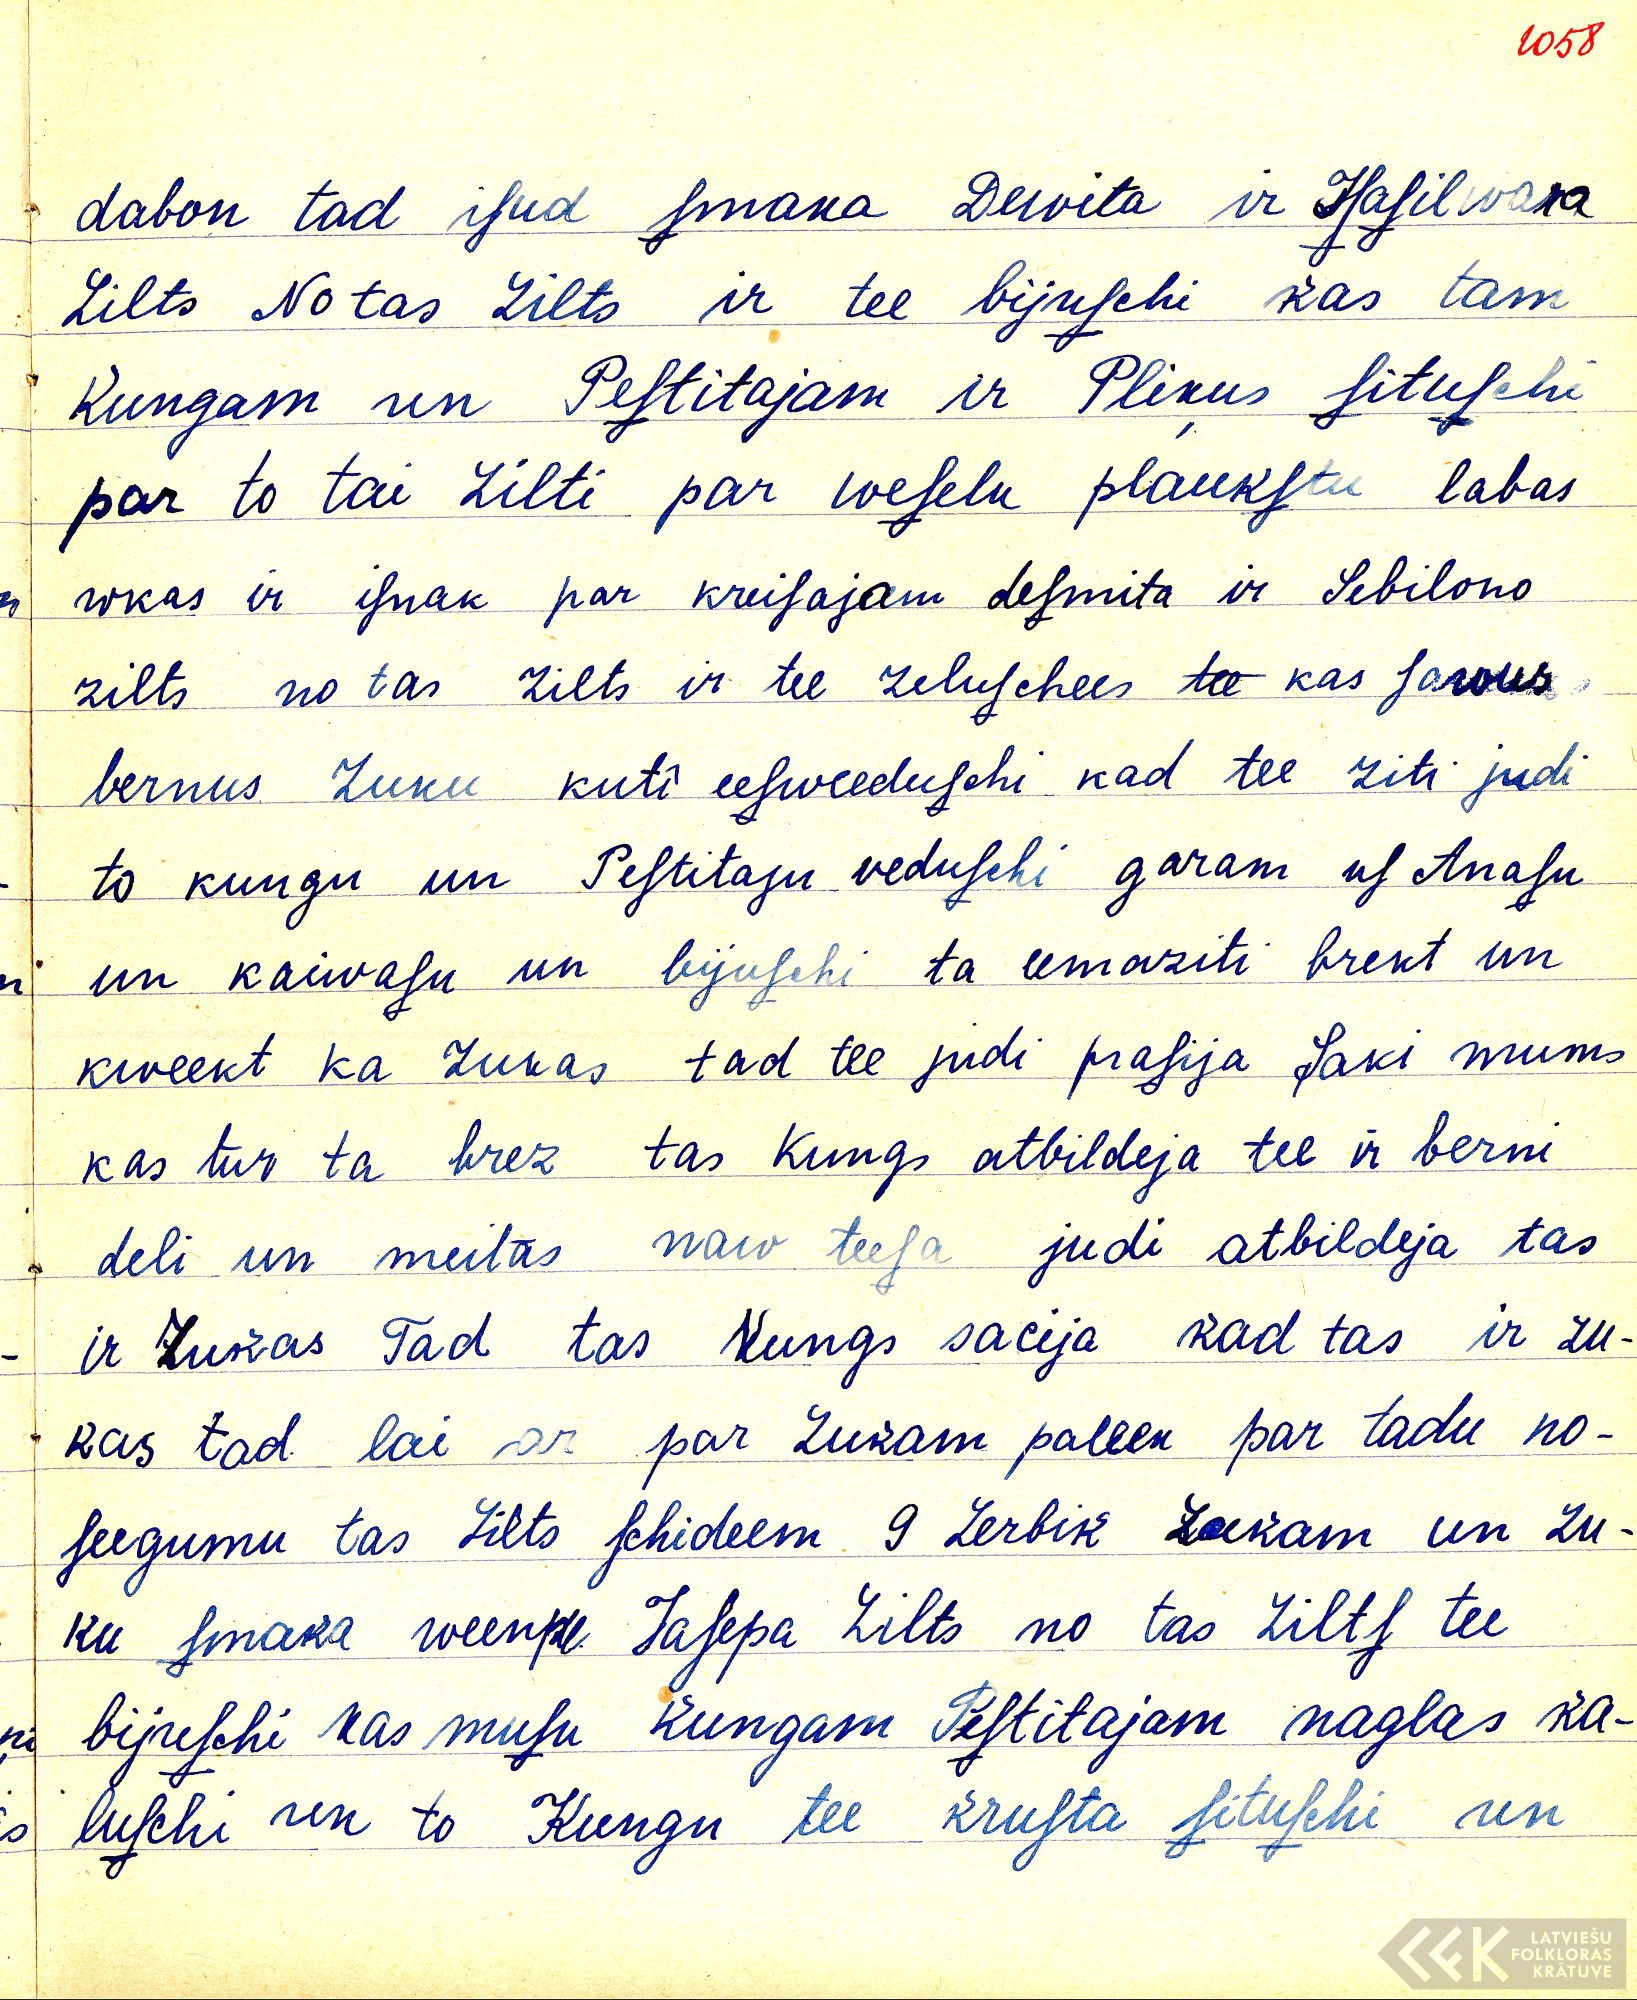 1058
dabon tad iſud ſmaka Dewita ir Haſilwara
Zilts No tas Zilts ir tee bijuſchi kas tam
Kungam un Peſtitajam ir Plikus ſituſchi
par to tai Zilti par weſelu plaukſtu labas
rokas ir iſnak par kreiſajam deſmita ir Sebilono
zilts no tas zilts ir tee zeluſchees tee kas ſawus
bernus Zuku kutî eeſweeduſchi kad tee ziti judi
to kungu un Peſtitaju veduſchi garam uſ Anaſu
un kaiwaſu un bijuſchi ta eemaziti brekt un
kweekt ka Zukas tad tee judi praſija ſaki mums
kas tur ta brez tas Kungs atbildeja tee ir berni
deli un meitas naw teeſa judi atbildeja tas
ir Zukas Tad tas Kungs sacija kad tas ir zu-
kas tad lai ar par Zukam paleek par tadu no-
ſeegumu tas Zilts ſchideem 9 Zerbik Zukam un zu-
ku ſmaka Jaſepa Zilts no tas Ziltſ tee
bijuſchi kas muſu kungam Peſtitajam naglas ka-
luſchi un to Kungu tee kruſta ſituſchi un
LATVIEŠU
FOLKLORAS
KRĀTUVE